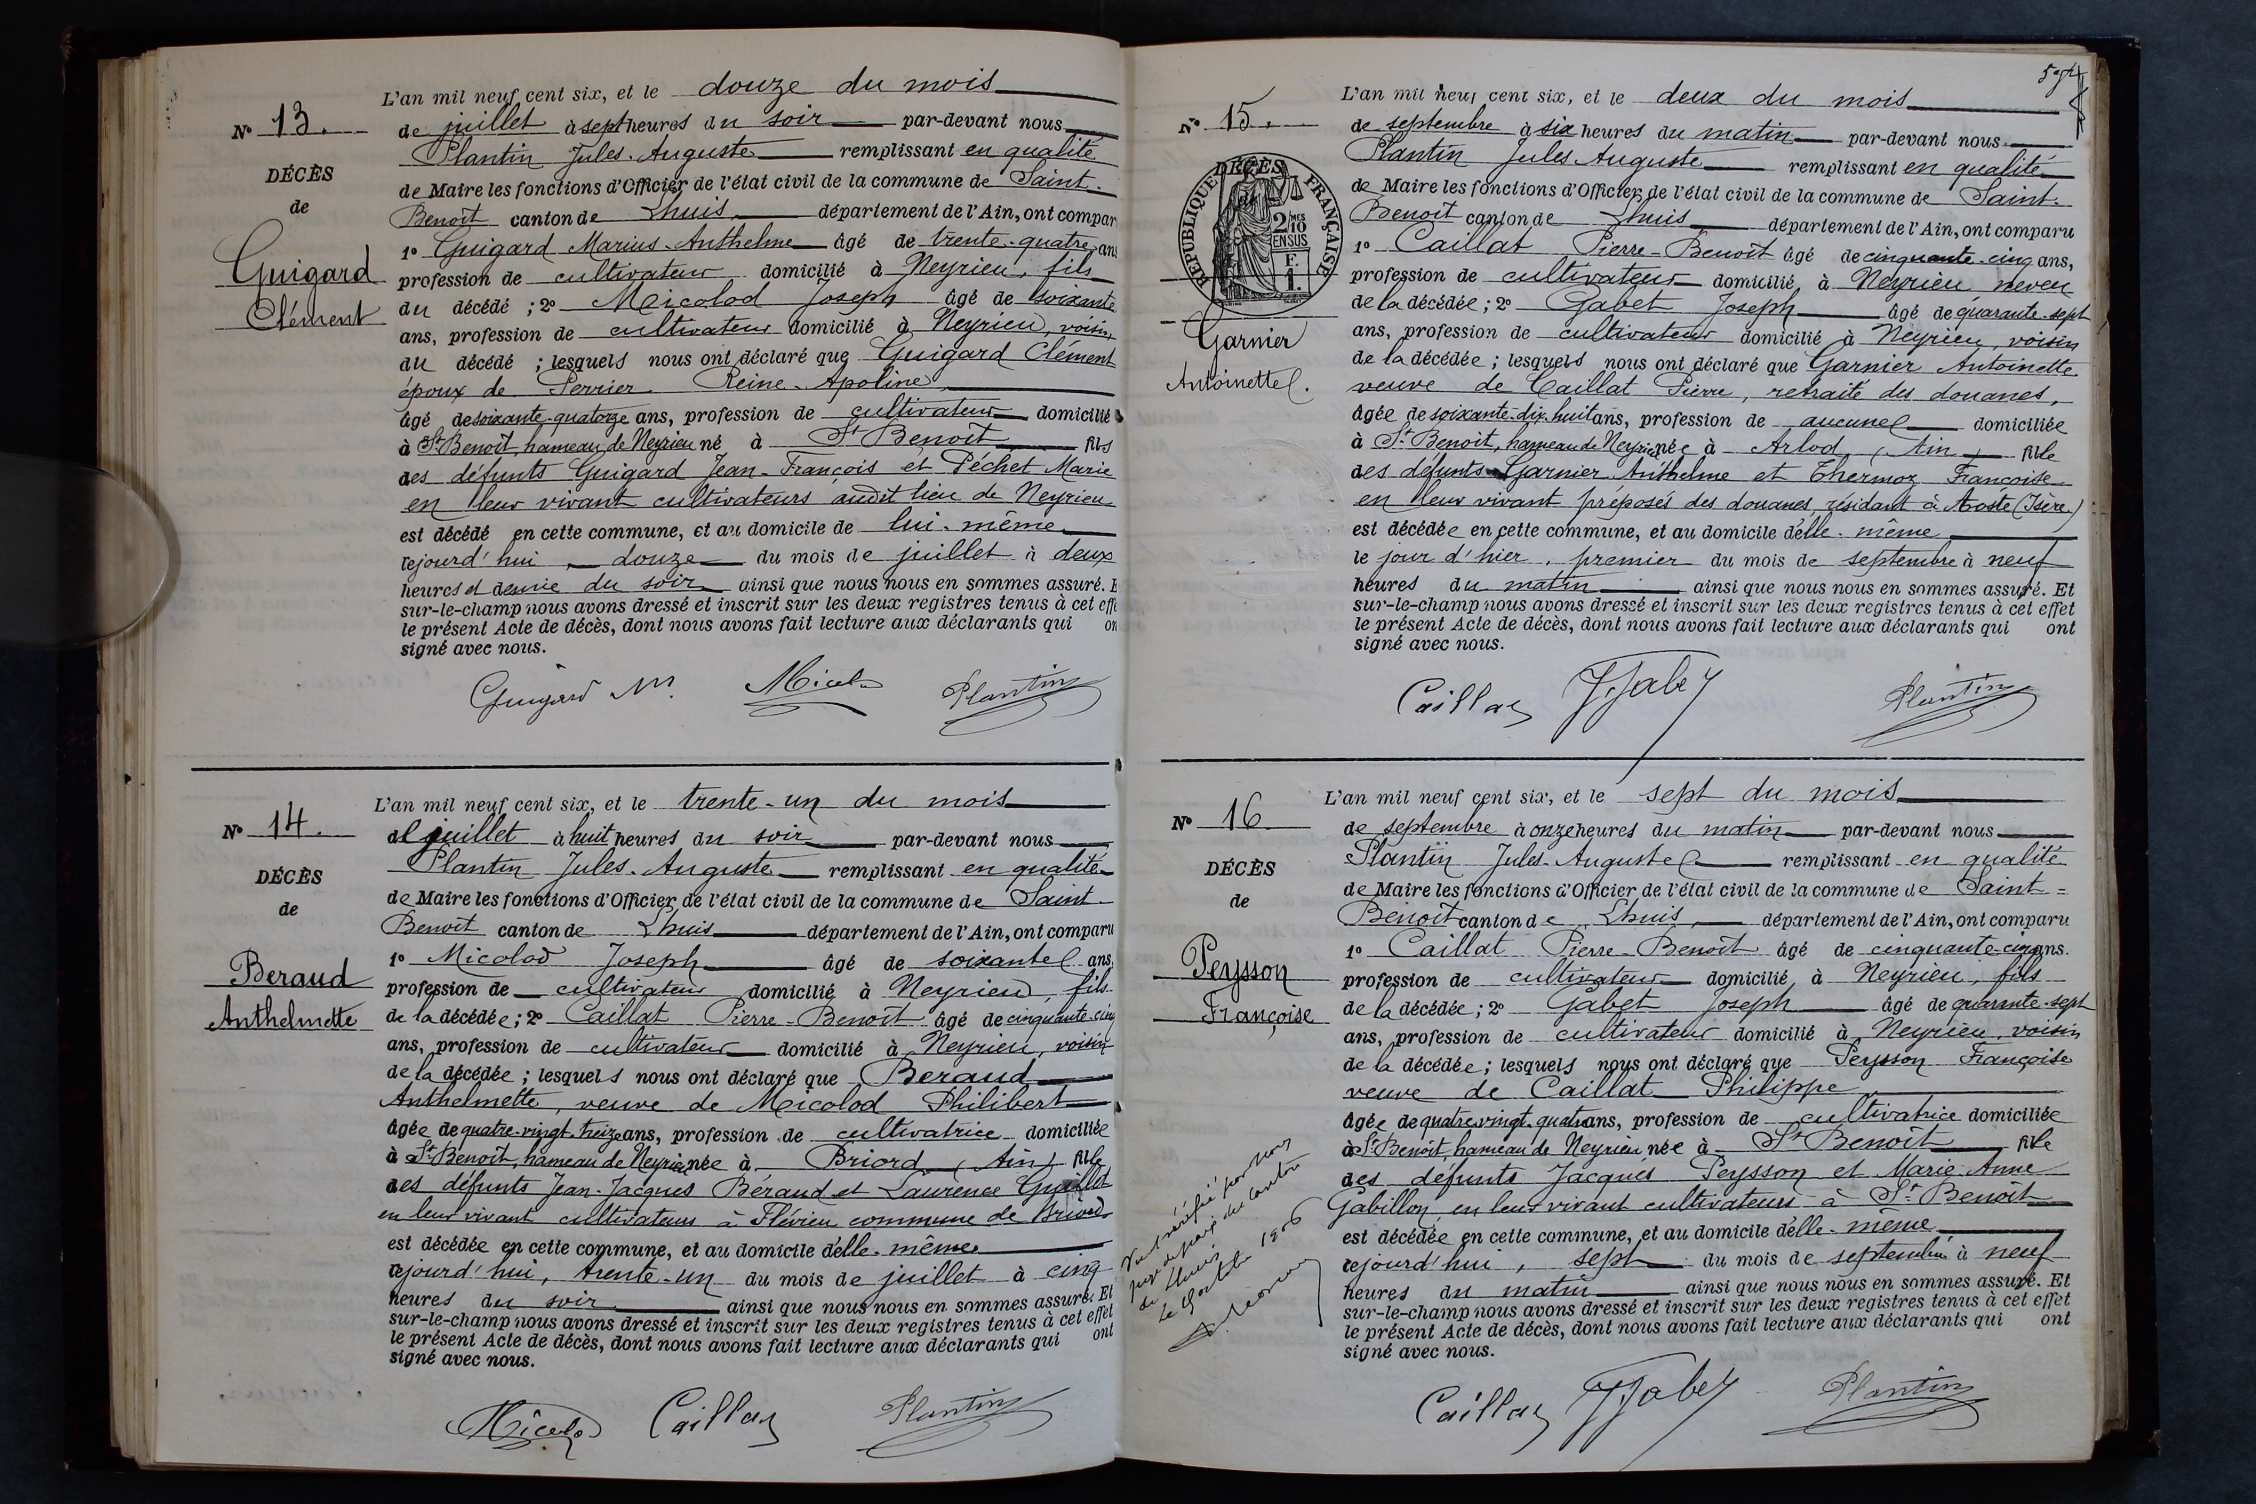 L'an mil neuf cent six, et le douze du mois
No 13.
de juillet à sept heures du soir par-devant nous
Plantin Jules-Auguste remplissant en qualité
DÉCÈS
de Maire les fonctions d'Officier de l'état civil de la commune de Saint-
de
Benoît canton de Lhuis département de l'Ain, ont compar
1o Guigard Marius-Anthelme âgé de trente-quatre ans
Guigard
profession de cultivateur domicilié à Neyrieu, fils
Clément
du décédé ; 2o Micolod Joseph âgé de soixante
ans, profession de cultivateur domicilié à Neyrieu, voisin
du décédé ; lesquels nous ont déclaré que Guigard Clément
époux de Perrier Reine-Apoline
âgé de soixante-quatorze ans, profession de cultivateur domicilié
à St Benoît, hameau de Neyrieu né à St Benoît fils
des défunts Guigard Jean-François et Péchet Marie
en leur vivant cultivateurs audit lieu de Neyrieu
est décédé en cette commune, et au domicile de lui-même
cejourd'hui douze du mois de juillet à deux
heures et demie du soir ainsi que nous nous en sommes assuré. E
sur-le-champ nous avons dressé et inscrit sur les deux registres tenus à cet effe
le présent Acte de décès, dont nous avons fait lecture aux déclarants qui on
signé avec nous.
Guigard M. Micol Plantin
L'an mil neuf cent six, et le trente-un du mois
No 14.
de juillet à huit heures du soir par-devant nous
Plantin Jules-Auguste remplissant en qualité
DÉCÈS
de Maire les fonctions d'Officier de l'état civil de la commune de Saint-
de
Benoît canton de Lhuis département de l'Ain, ont comparu
1o Micolod Joseph âgé de soixante ans,
Beraud
profession de cultivateur domicilié à Neyrieu, fils
Anthelmette
de la décédée ; 2o Caillat Pierre-Benoît âgé de cinquante-cinq
ans, profession de cultivateur domicilié à Neyrieu, voisin
de la décédée ; lesquels nous ont déclaré que Beraud
Anthelmette, veuve de Micolod Philibert
âgée de quatre-vingt-treize ans, profession de cultivatrice domiciliée
à St Benoît, hameau de Neyrieu née à Briord (Ain) fille
des défunts Jean-Jacques Béraud et Laurence Guillot
en leur vivant cultivateurs à Flévieu commune de Briord
est décédée en cette commune, et au domicile d'elle-même
cejourd'hui, trente-un du mois de juillet à cinq
heures du soir ainsi que nous nous en sommes assuré. Et
sur-le-champ nous avons dressé et inscrit sur les deux registres tenus à cet effet
le présent Acte de décès, dont nous avons fait lecture aux déclarants qui ont
signé avec nous.
Micolo Caillat Plantin
L'an mil neuf cent six, et le deux du mois
No 15.
de septembre à six heures du matin par-devant nous
Plantin Jules Auguste remplissant en qualité
DÉCÈS
de
RÉPUBLIQUE FRANÇAISE
2/10 MES
EN SUS
F.
1.
de Maire les fonctions d'Officier de l'état civil de la commune de Saint-
Benoît canton de Lhuis département de l'Ain, ont comparu
1o Caillat Pierre-Benoît âgé de cinquante-cinq ans,
profession de cultivateur domicilié à Neyrieu neveu
de la décédée ; 2o Gabet Joseph âgé de quarante-sept
Garnier
ans, profession de cultivateur domicilié à Neyrieu, voisin
de la décédée ; lesquels nous ont déclaré que Garnier Antoinette
Antoinette.
veuve de Caillat Pierre, retraité des douanes,
âgée de soixante-dix-huit ans, profession de aucune domiciliée
à St Benoît, hameau de Neyrieu née à Arlod, (Ain) fille
des défunts Garnier Anthelme et Thermoz Françoise
en leur vivant préposés des douanes, résidant à Aoste (Isère.)
est décédée en cette commune, et au domicile d'elle-même
le jour d'hier, premier du mois de septembre à neuf
heures du matin ainsi que nous nous en sommes assuré. Et
sur-le-champ nous avons dressé et inscrit sur les deux registres tenus à cet effet
le présent Acte de décès, dont nous avons fait lecture aux déclarants qui ont
signé avec nous.
Caillat J. Gabet Plantin
L'an mil neuf cent six, et le sept du mois
No 16
de septembre à onze heures du matin par-devant nous
Plantin Jules-Auguste remplissant en qualité
DÉCÈS
de Maire les fonctions d'Officier de l'état civil de la commune de Saint-
de
Benoît canton de Lhuis, département de l'Ain, ont comparu
1o Caillat Pierre-Benoît âgé de cinquante-cinq ans.
Peysson
profession de cultivateur domicilié à Neyrieu, fils
Françoise
de la décédée ; 2o Gabet Joseph âgé de quarante-sept
ans, profession de cultivateur domicilié à Neyrieu, voisin
de la décédée ; lesquels nous ont déclaré que Peysson Françoise
veuve de Caillat Philippe
âgée de quatre-vingt-quatre ans, profession de cultivatrice domiciliée
à St Benoît, hameau de Neyrieu née à St Benoît fille
des défunts Jacques Peysson et Marie-Anne
Gabillon en leur vivant cultivateurs à St Benoît
est décédée en cette commune, et au domicile d'elle-même
cejourd'hui, sept du mois de septembre à neuf
heures du matin ainsi que nous nous en sommes assuré. Et
sur-le-champ nous avons dressé et inscrit sur les deux registres tenus à cet effet
le présent Acte de décès, dont nous avons fait lecture aux déclarants qui ont
signé avec nous.
Vu et vérifié par nous
juge de paix du canton
de Lhuis
Le 1906
Caillat J. Gabet Plantin